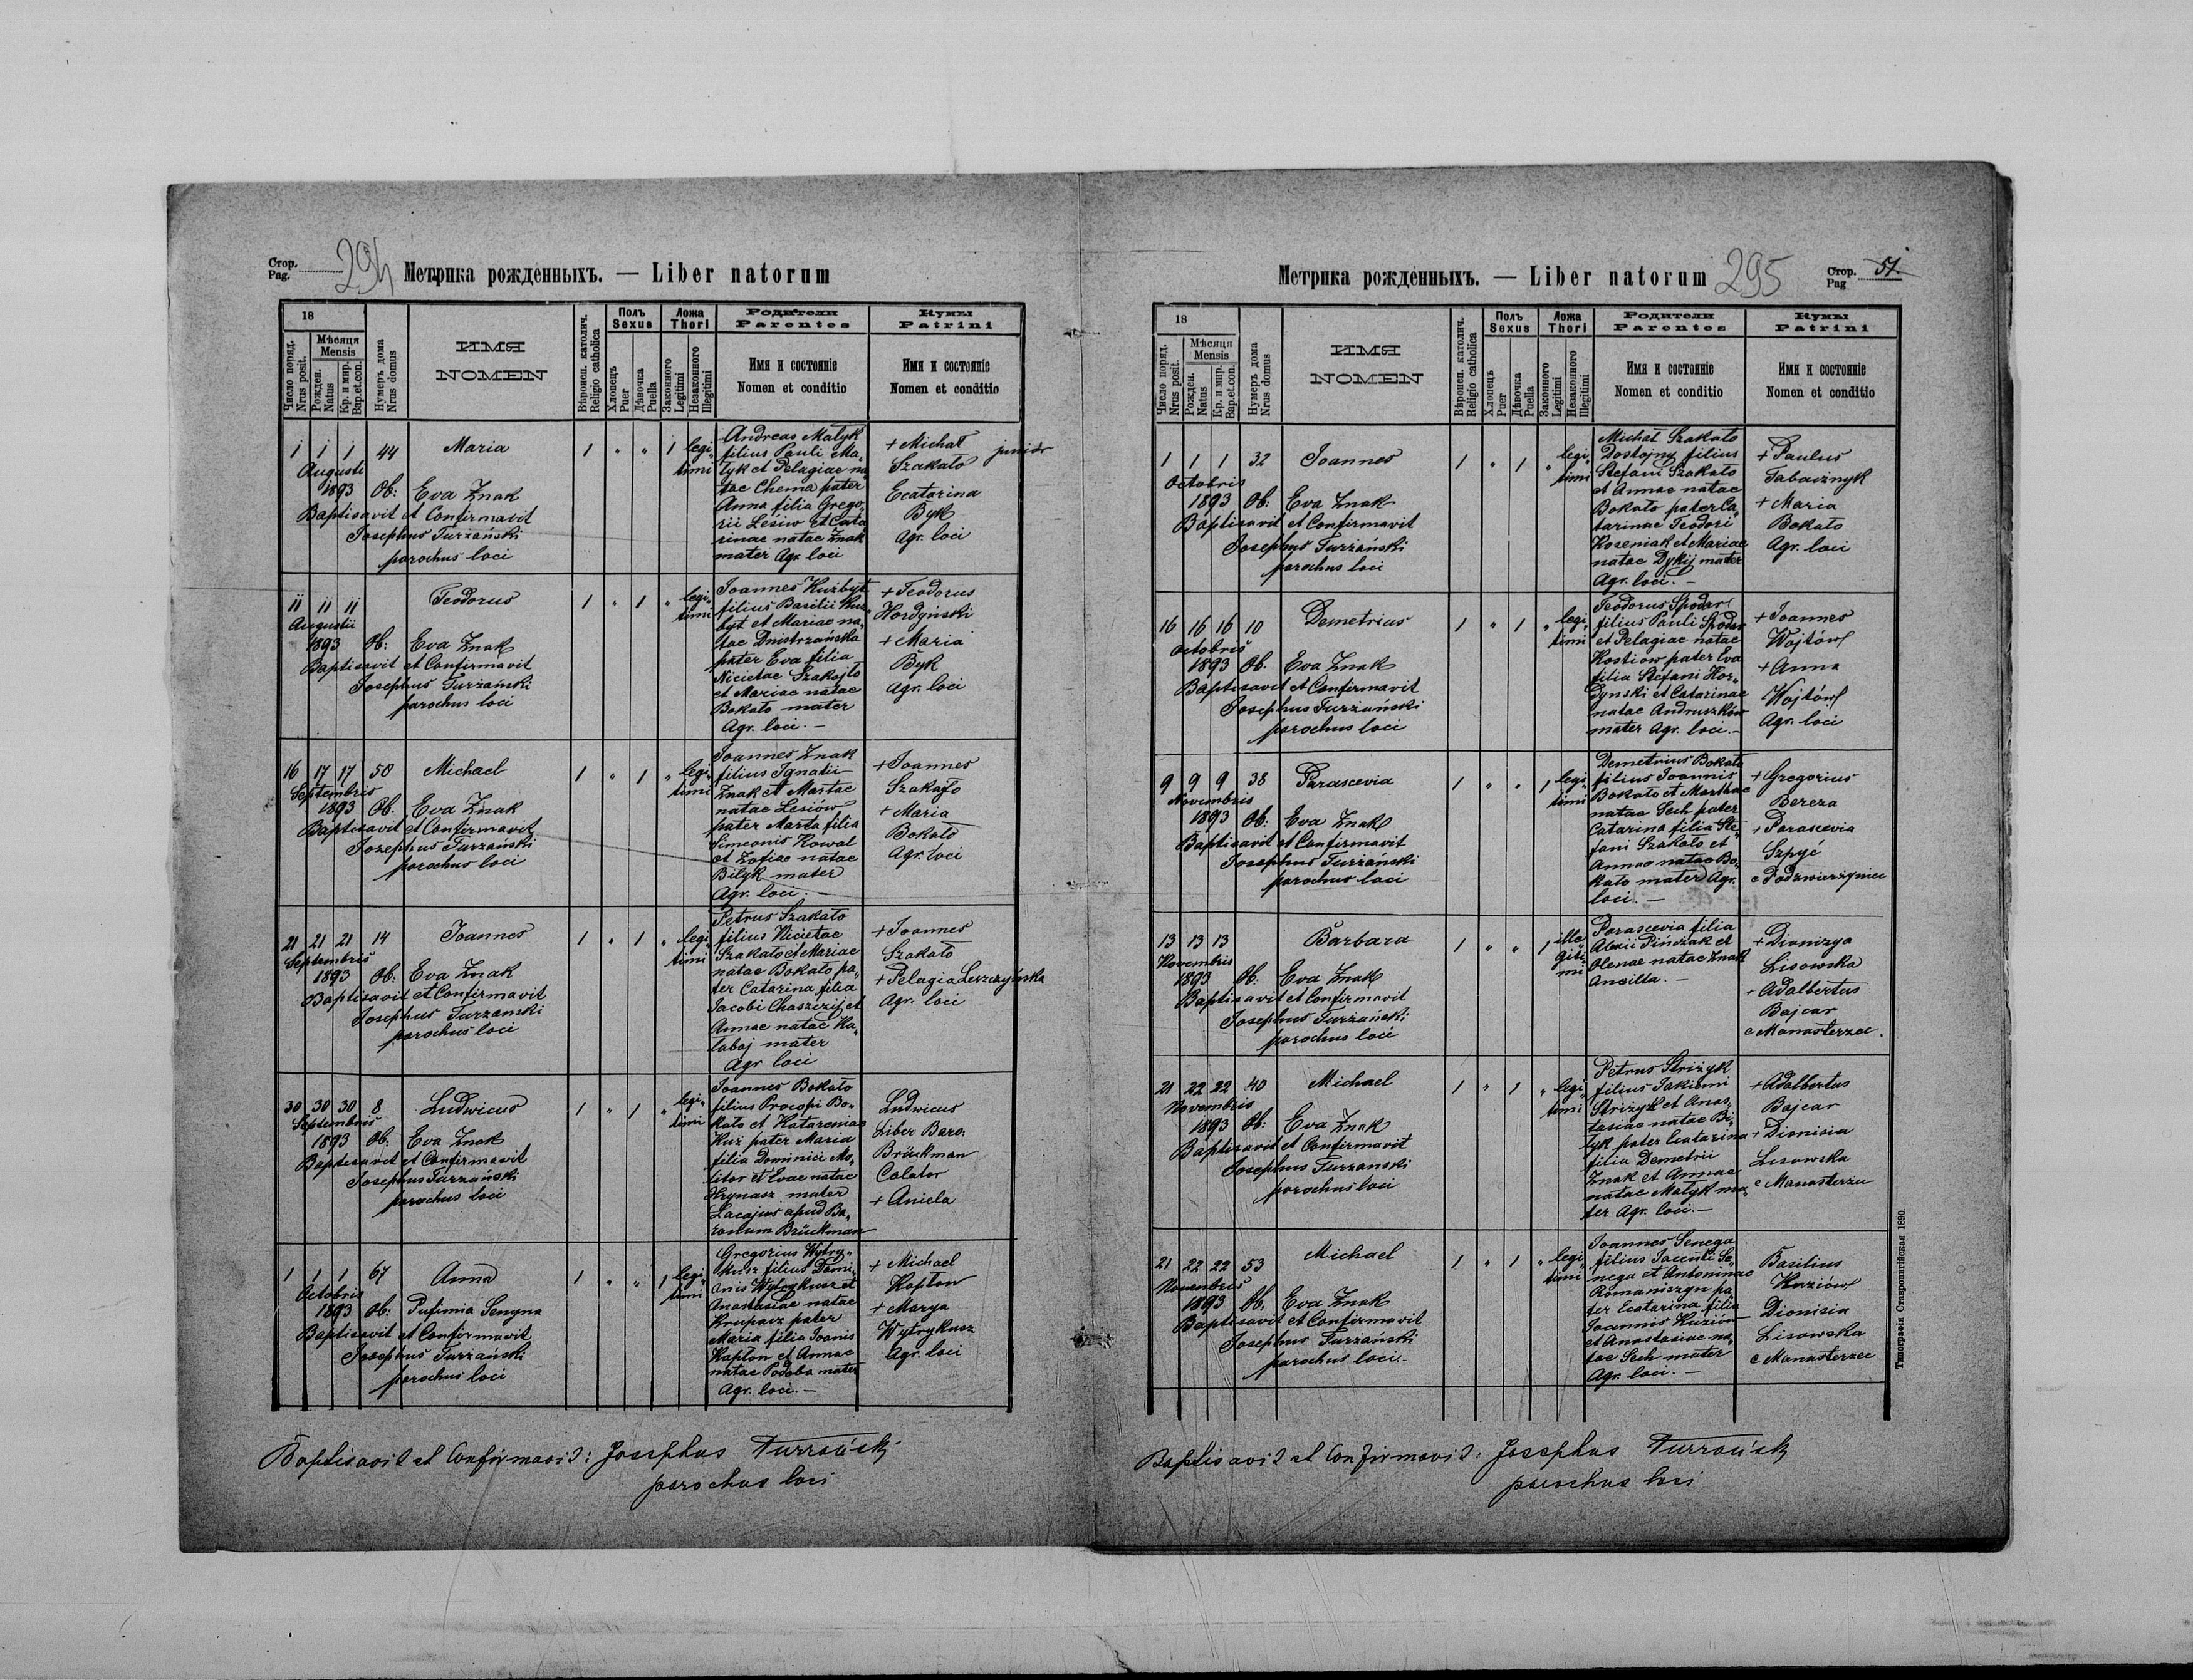 Стор.
Pag.
294
Метрика рожденныхъ. — Liber natorum
18
Число поряд.
Nrus posit.
Мѣсяця
Mensis
Рожден.
Natus
Кр. и мир.
Bap.et.con.
Нумеръ дома
Nrus domus
ИМЯ
NOMEN
Вѣроисп. католич.
Religio catholica
Полъ
Sexus
Хлопецъ
Puer
Дѣвочка
Puella
Ложа
Thori
Законного
Legitimi
Незаконного
Illegitimi
Родители
Parentes
Имя и состояніе
Nomen et conditio
Кумы
Patrini
Имя и состояніе
Nomen et conditio
1 1 1 44 Maria 1 " " 1 legi„
timi
Augusti
1893 Ob: Eva Znak
Baptisavit et Confirmavit
Josephus Turzański
parochus loci
Andreas Matyk
filius Pauli Ma„
tyk et Pelagiae na
tae Chema pater
Anna filia Grego„
rii Lesiw et Cata
rinae natae Znak
mater Agr. loci
+ Michał junior
Szakało
Ecatarina
Byk
Agr. loci
11 11 11 Teodorus 1 " 1 " legi„
timi
Augustii
1893 Ob: Eva Znak
Baptisavit et Confirmavit
Josephus Turzański
parochus loci
Joannes Kuźbyt
filius Basilii Kuź
byt et Mariae na„
tae Dnistrzańska
pater Eva filia
Nicietae Szakajło
et Mariae natae
Bokało mater
Agr. loci. —
+ Teodorus
Hordyński
+ Maria
Byk
agr. loci
16 17 17 50 Michael 1 " 1 " legi„
timi
Septembris
1893 Ob: Eva Znak
Baptisavit et Confirmavit
Josephus Turzański
parochus loci
Joannes Znak
filius Ignatii
Znak et Martae
natae Lesiów
pater Marta filia
Simeonis Kowal
et Zofiae natae
Bilyk mater
Agr. loci. —
+ Joannes
Szakało
+ Maria
Bokało
Agr. loci
21 21 21 14 Joannes 1 " 1 " legi„
timi
Septembris
1893 Ob: Eva Znak
Baptisavit et Confirmavit
Josephus Turzanski
parochus loci
Petrus Szakało
filius Nicietae
Szakało et Mariae
natae Bokało pa„
ter Catarina filia
Jacobi Chaszczij et
Annae natae Ka„
łaboj mater
Agr loci
+ Joannes
Szakało
+ Pelagia Leszczyńska
Agr. loci
30 30 30 8 Ludwicus 1 " 1 " legi„
timi
Septembris
1893 Ob: Eva Znak
Baptisavit et Confirmavit
Josephus Turzański
parochus loci
Joannes Bokało
filius Procopi Bo„
kało et Katarenias
Kuź pater Maria
filia Dominici Mo„
litor et Evae natae
Hrynasz mater
Lacajus apud Ba„
ronum Brückman
Ludwicus
Liber Baro:
Brückman
Calator
+ Aniela
1 1 1 67 Anna 1 " " 1 legi„
timi
Octobris
1893 Ob: Pufimia Senyna
Baptisavit et Confirmavit
Josephus Turzański
parochus loci
Gregorius Wytry„
kusz filius Dami„
anis Wytrykusz et
Anastasiae natae
Krupacz pater
Maria filia Joanis
Kapton et Annae
natae Podoba mater
Agr. loci. —
+ Michael
Kapton
+ Marya
Wytrykusz
Agr. loci
Baptisavit et Confirmavit: Josephus Turzański
parochus loci
Метрика рожденныхъ. — Liber natorum
295
Стор.
Pag
51.
18
Число поряд.
Nrus posit.
Мѣсяця
Mensis
Рожден.
Natus
Кр. и мир.
Bap.et.con.
Нумеръ дома
Nrus domus
ИМЯ
NOMEN
Вѣроисп. католич.
Religio catholica
Полъ
Sexus
Хлопецъ
Puer
Дѣвочка
Puella
Ложа
Thori
Законного
Legitimi
Незаконного
Illegitimi
Родители
Parentes
Имя и состояніе
Nomen et conditio
Кумы
Patrini
Имя и состояніе
Nomen et conditio
1 1 1 32 Joannes 1 " 1 " legi„
timi
Octobris
1893 Ob: Eva Znak
Baptisavit et Confirmavit
Josephus Turzański
parochus loci
Michał Szakało
Dostojny filius
Stefani Szakało
et Annae natae
Bokało pater Ca„
tarinae Teodori
Koseniak et Mariae
natae Dykij mater
Agr. loci. —
+ Paulus
Tabacznyk
+ Maria
Bokało
Agr. loci
16 16 16 10 Demetrius 1 " 1 " legi„
timi
Octobris
1893 Ob: Eva Znak
Baptisavit et Confirmavit
Josephus Turzański
parochus loci
Teodorus Spodar
filius Pauli Spodar
et Pelagiae natae
Kostiow pater Eva
filia Stefani Hor„
dynski et Catarinae
natae Andruszków
mater Agr. loci. —
+ Joannes
Wojtów
+ Anna
Wojtów
Agr. loci
9 9 9 38 Parascevia 1 " " 1 legi
timi
Novembris
1893 Ob: Eva Znak
Baptisavit et Confirmavit
Josephus Turzański
parochus loci
Demetrius Bokało
filius Joannis
Bokało et Marthae
natae Sech pater
Catarina filia Ste„
fani Szakało et
Annae natae Bo„
kało mater Agr.
loci. —
+ Gregorius
Bereza
+ Parascevia
Szpyć
e Podzwierzyniec
13 13 13 Barbara 1 " " 1 ille
giti
mi
Novembris
1893 Ob: Eva Znak
Baptisavit et Confirmavit
Josephus Turzański
parochus loci
Parascevia filia
Alexii Pińczak et
Olenae natae Znak
Ancilla. —
+ Dionizya
Lisowska
+ Adalbertus
Bajcar
e Manasterzec.
21 22 22 40 Michael 1 " 1 " legi„
timi
Novembris
1893 Ob: Eva Znak
Baptisavit et Confirmavit
Josephus Turzanski
parochus loci
Petrus Striżyk
filius Jakiemi
Striżyk et Anas„
tasiae natae Bi„
łyk pater Ecatarina
filia Demetrii
Znak et Annae
natae Matyk ma„
ter Agr. loci. —
+ Adalbertus
Bajcar
+ Dionisia
Lisowska
e Manasterzu
21 22 22 53 Michael 1 " 1 " legi„
timi
Novembris
1893 Ob. Eva Znak
Baptisavit et Confirmavit
Josephus Turzański
parochus loci.
Joannes Senega
filius Jacenti Se„
nega et Antoninae
Romaniszyn pa„
ter Ecatarina filia
Joannis Kuziów
et Anastasiae na„
tae Sech mater
Agr. loci. —
Basilius
Kuziów
Dionisia
Lisowska
e Manasterzec
Baptisavit et Confirmavit: Josephus Turzański
parochus loci
Типографія Ставропигійская 1890.